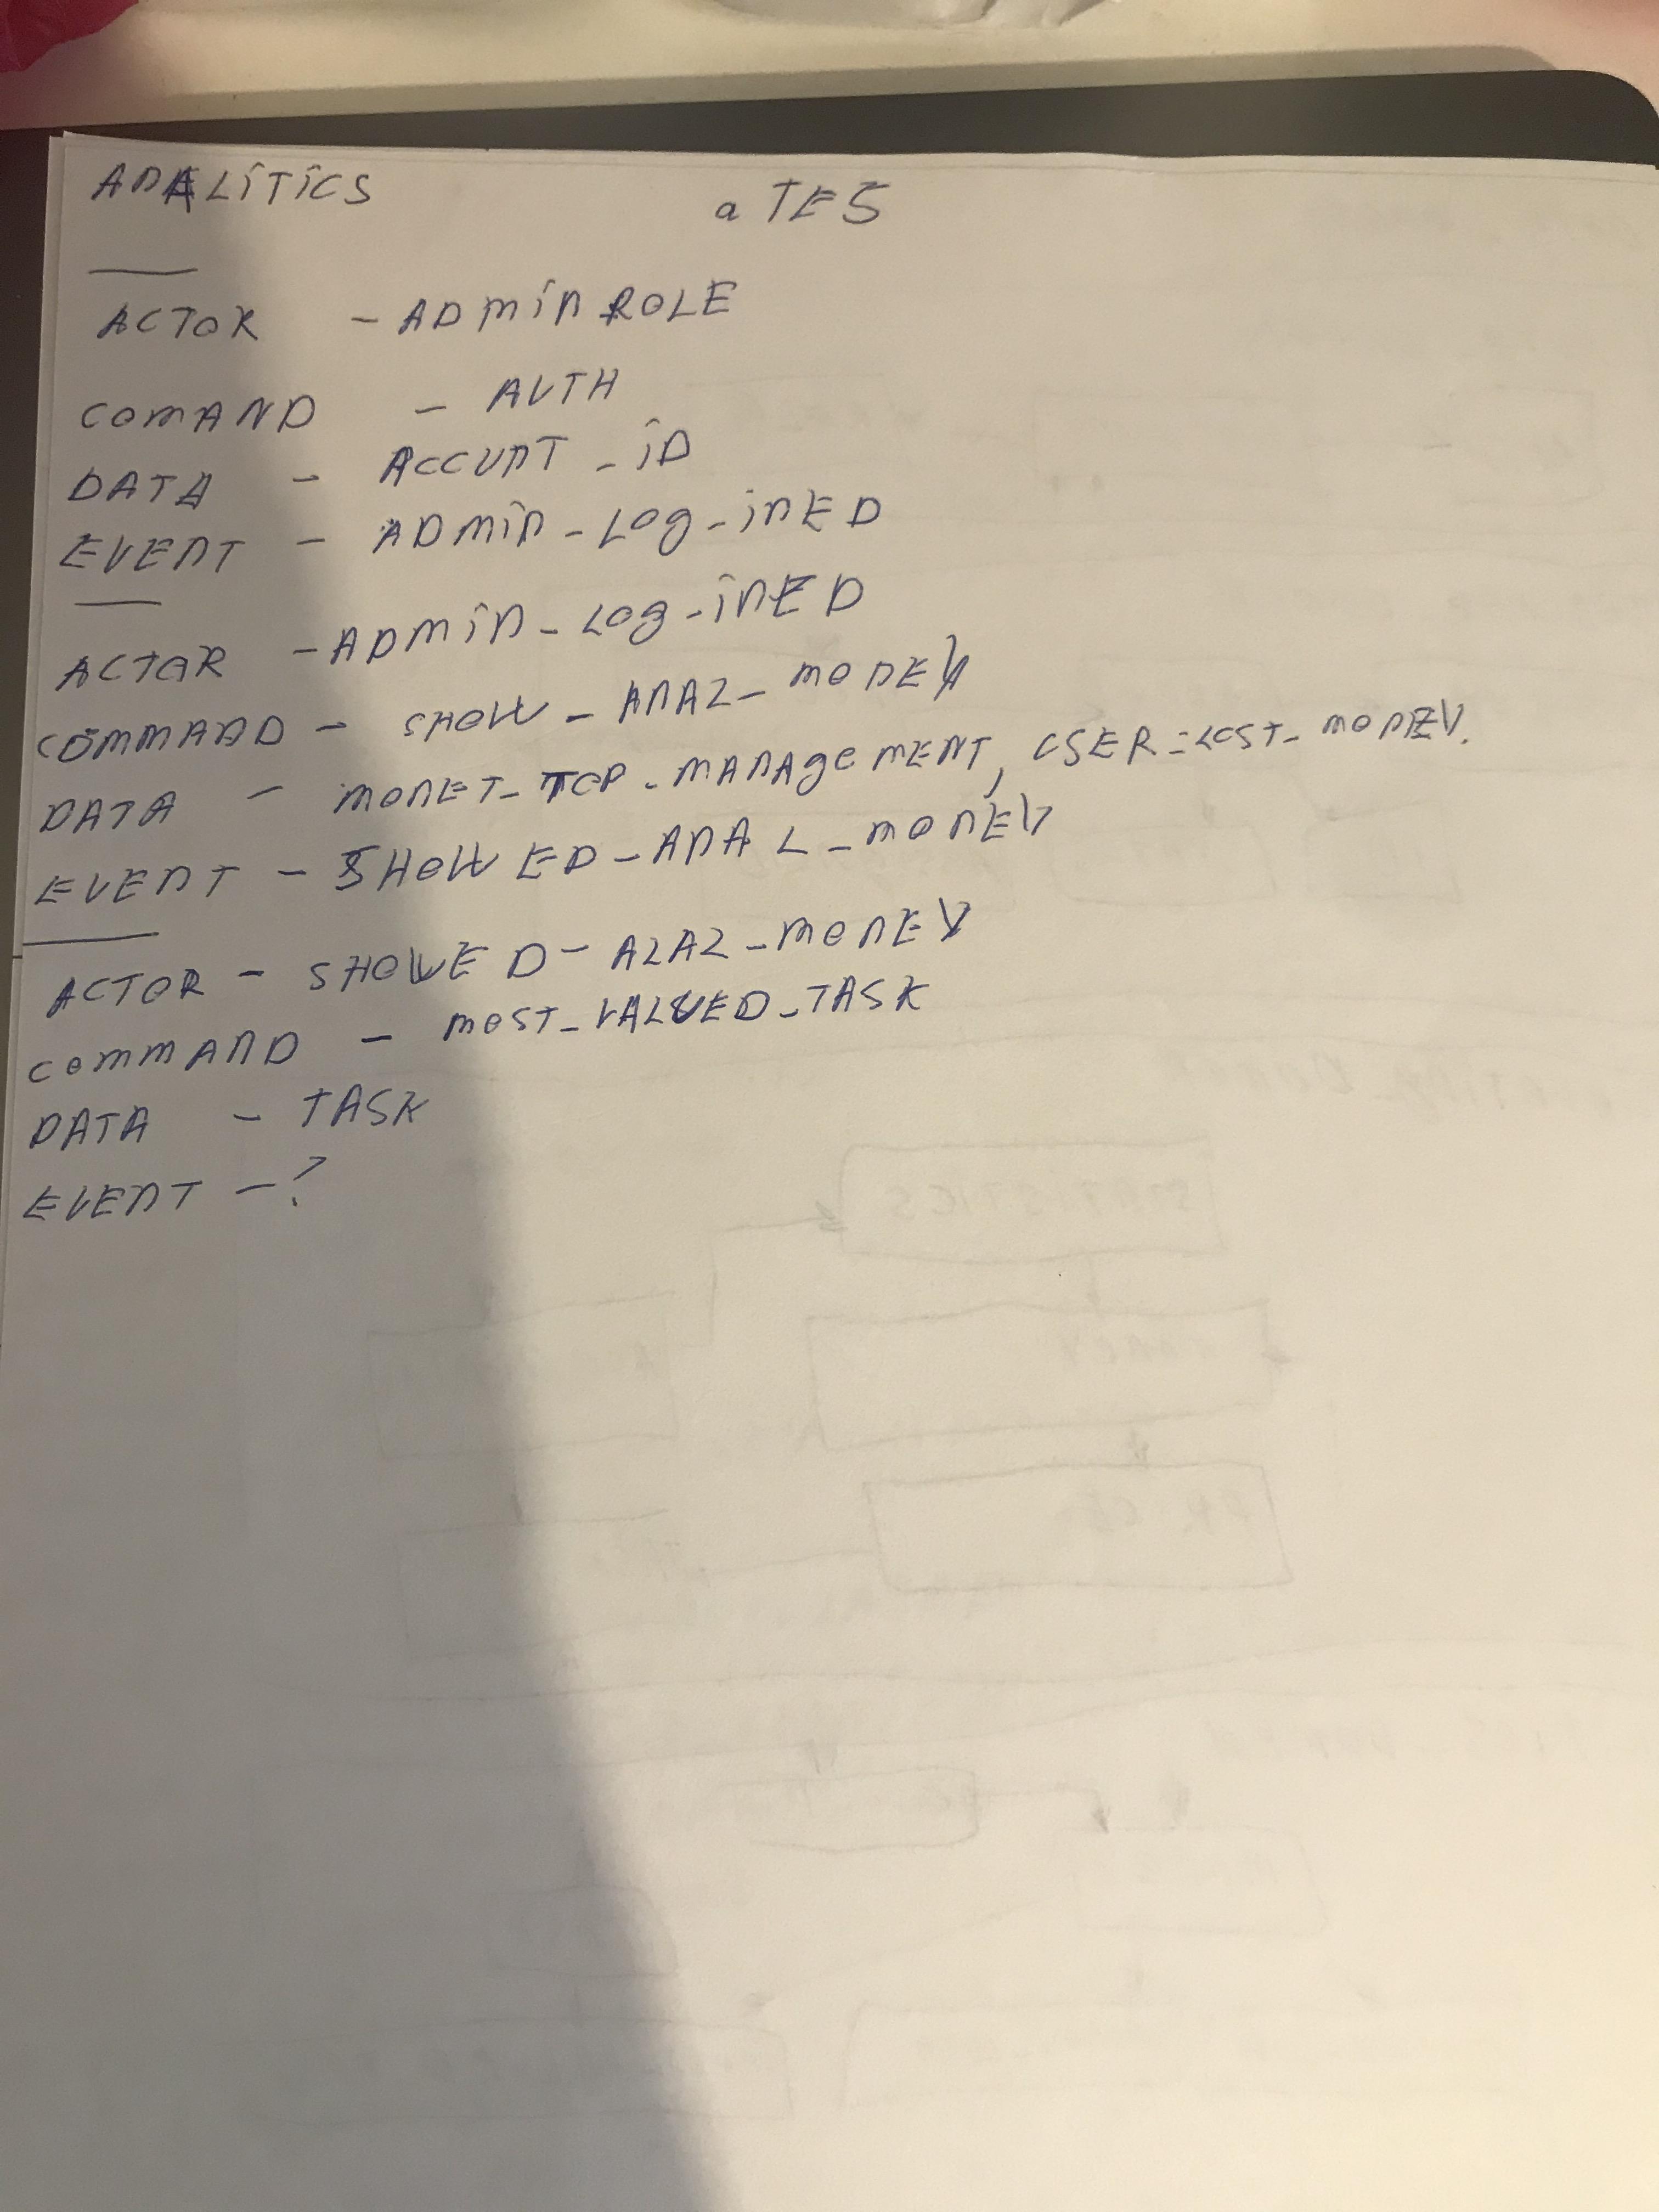 ANALITICS
aTES
ACTOR - ADMIN ROLE
COMAND - AUTH
DATA - ACCUNT_ID
EVENT - ADMIN_LOG_INED
ACTOR - ADMIN_LOG_INED
COMMAND - SHOW_ANAL_MONEY
DATA - MONET_TOP_MANAGEMENT, USER_LOST_MONEY.
EVENT - SHOWED_ANAL_MONEY
ACTOR - SHOWED_ALAL_MONEY
COMMAND - MOST_VALUED_TASK
DATA - TASK
EVENT - ?